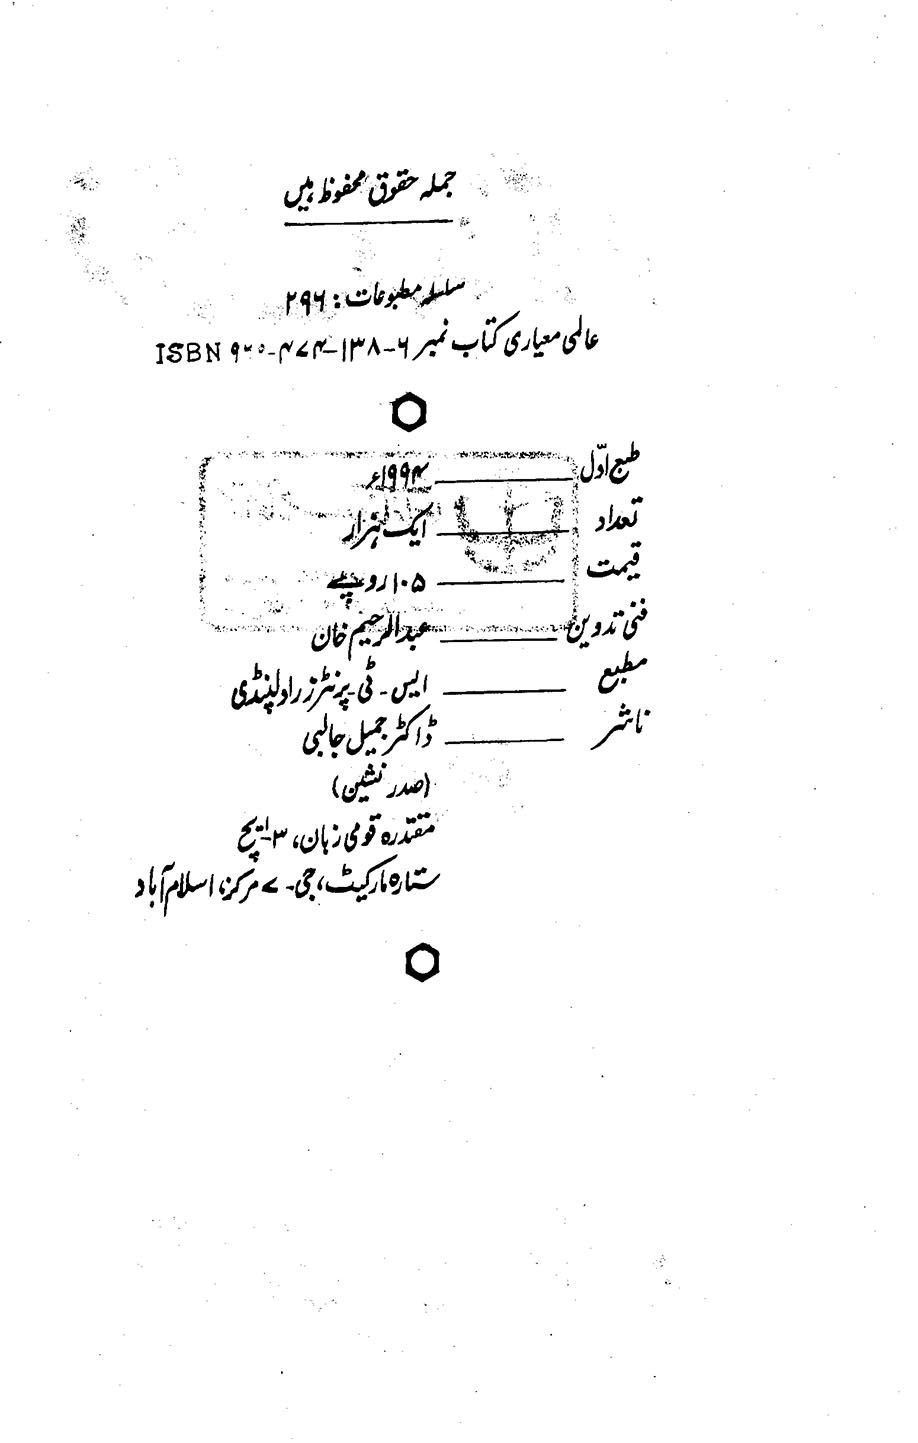 جملہ حقوق محفوظ ہیں
سلسلہ مطبوعات : ۲۹۶
عالمی معیاری کتاب نمبر ۶-۱۳۸-۴۷۴-۹۶۹ ISBN
طبع اوّل ــــــــ ۱۹۹۴ء
تعداد ــــــــ ایک ہزار
قیمت ــــــــ ۱۰۵ روپے
فنی تدوین ــــــــ عبدالرحیم خان
مطبع ــــــــ ایس - ٹی پرنٹرز راولپنڈی
ناشر ــــــــ ڈاکٹر جمیل جالبی
(صدر نشین)
مقتدرہ قومی زبان، ۳-ایچ
ستارہ مارکیٹ، جی- ۷ مرکز، اسلام آباد